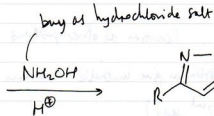 buy as hydrochloride salt
NH2OH
H⊕
N
R